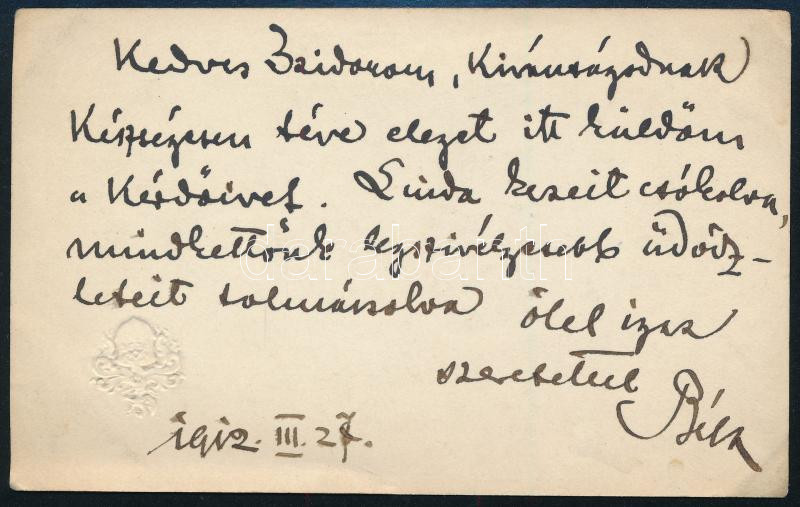 Kedves Izidorom, Kivánságodnak
Készségesen téve eleget itt küldöm
a Kérdőivet. Linda kezeit csókolva,
mindkettőnk legszivélyesebb üdöz-
leteit tolmácsolva ölel igaz
szeretettel
Béla
1912. III. 27.
darabanth